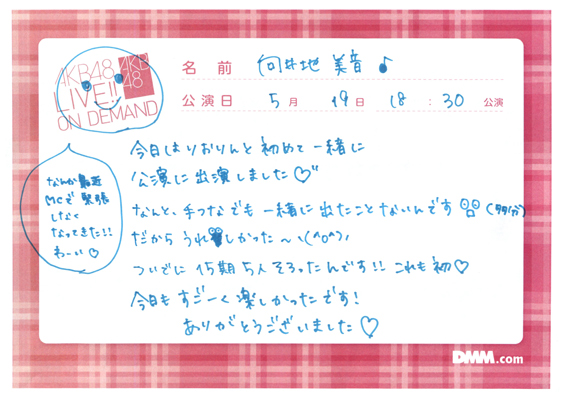 AKB48
LIVE!!
ON DEMAND
AKB
48
名 前 向井地 美音♪
公演日 5月 19日 18:30 公演
今日はりおりんと初めて一緒に
公演に出演しました♡
なんと、手つなでも一緒に出たことないんです (多分)
だから うれしかった〜ヽ(^o^)ノ
ついでに 15期5人そろったんです!! これも初♡
今日もすごーく楽しかったです!
ありがとうございました♡
なんか最近
MCで緊張
しなく
なってきた!!
わーい♡
DMM.com